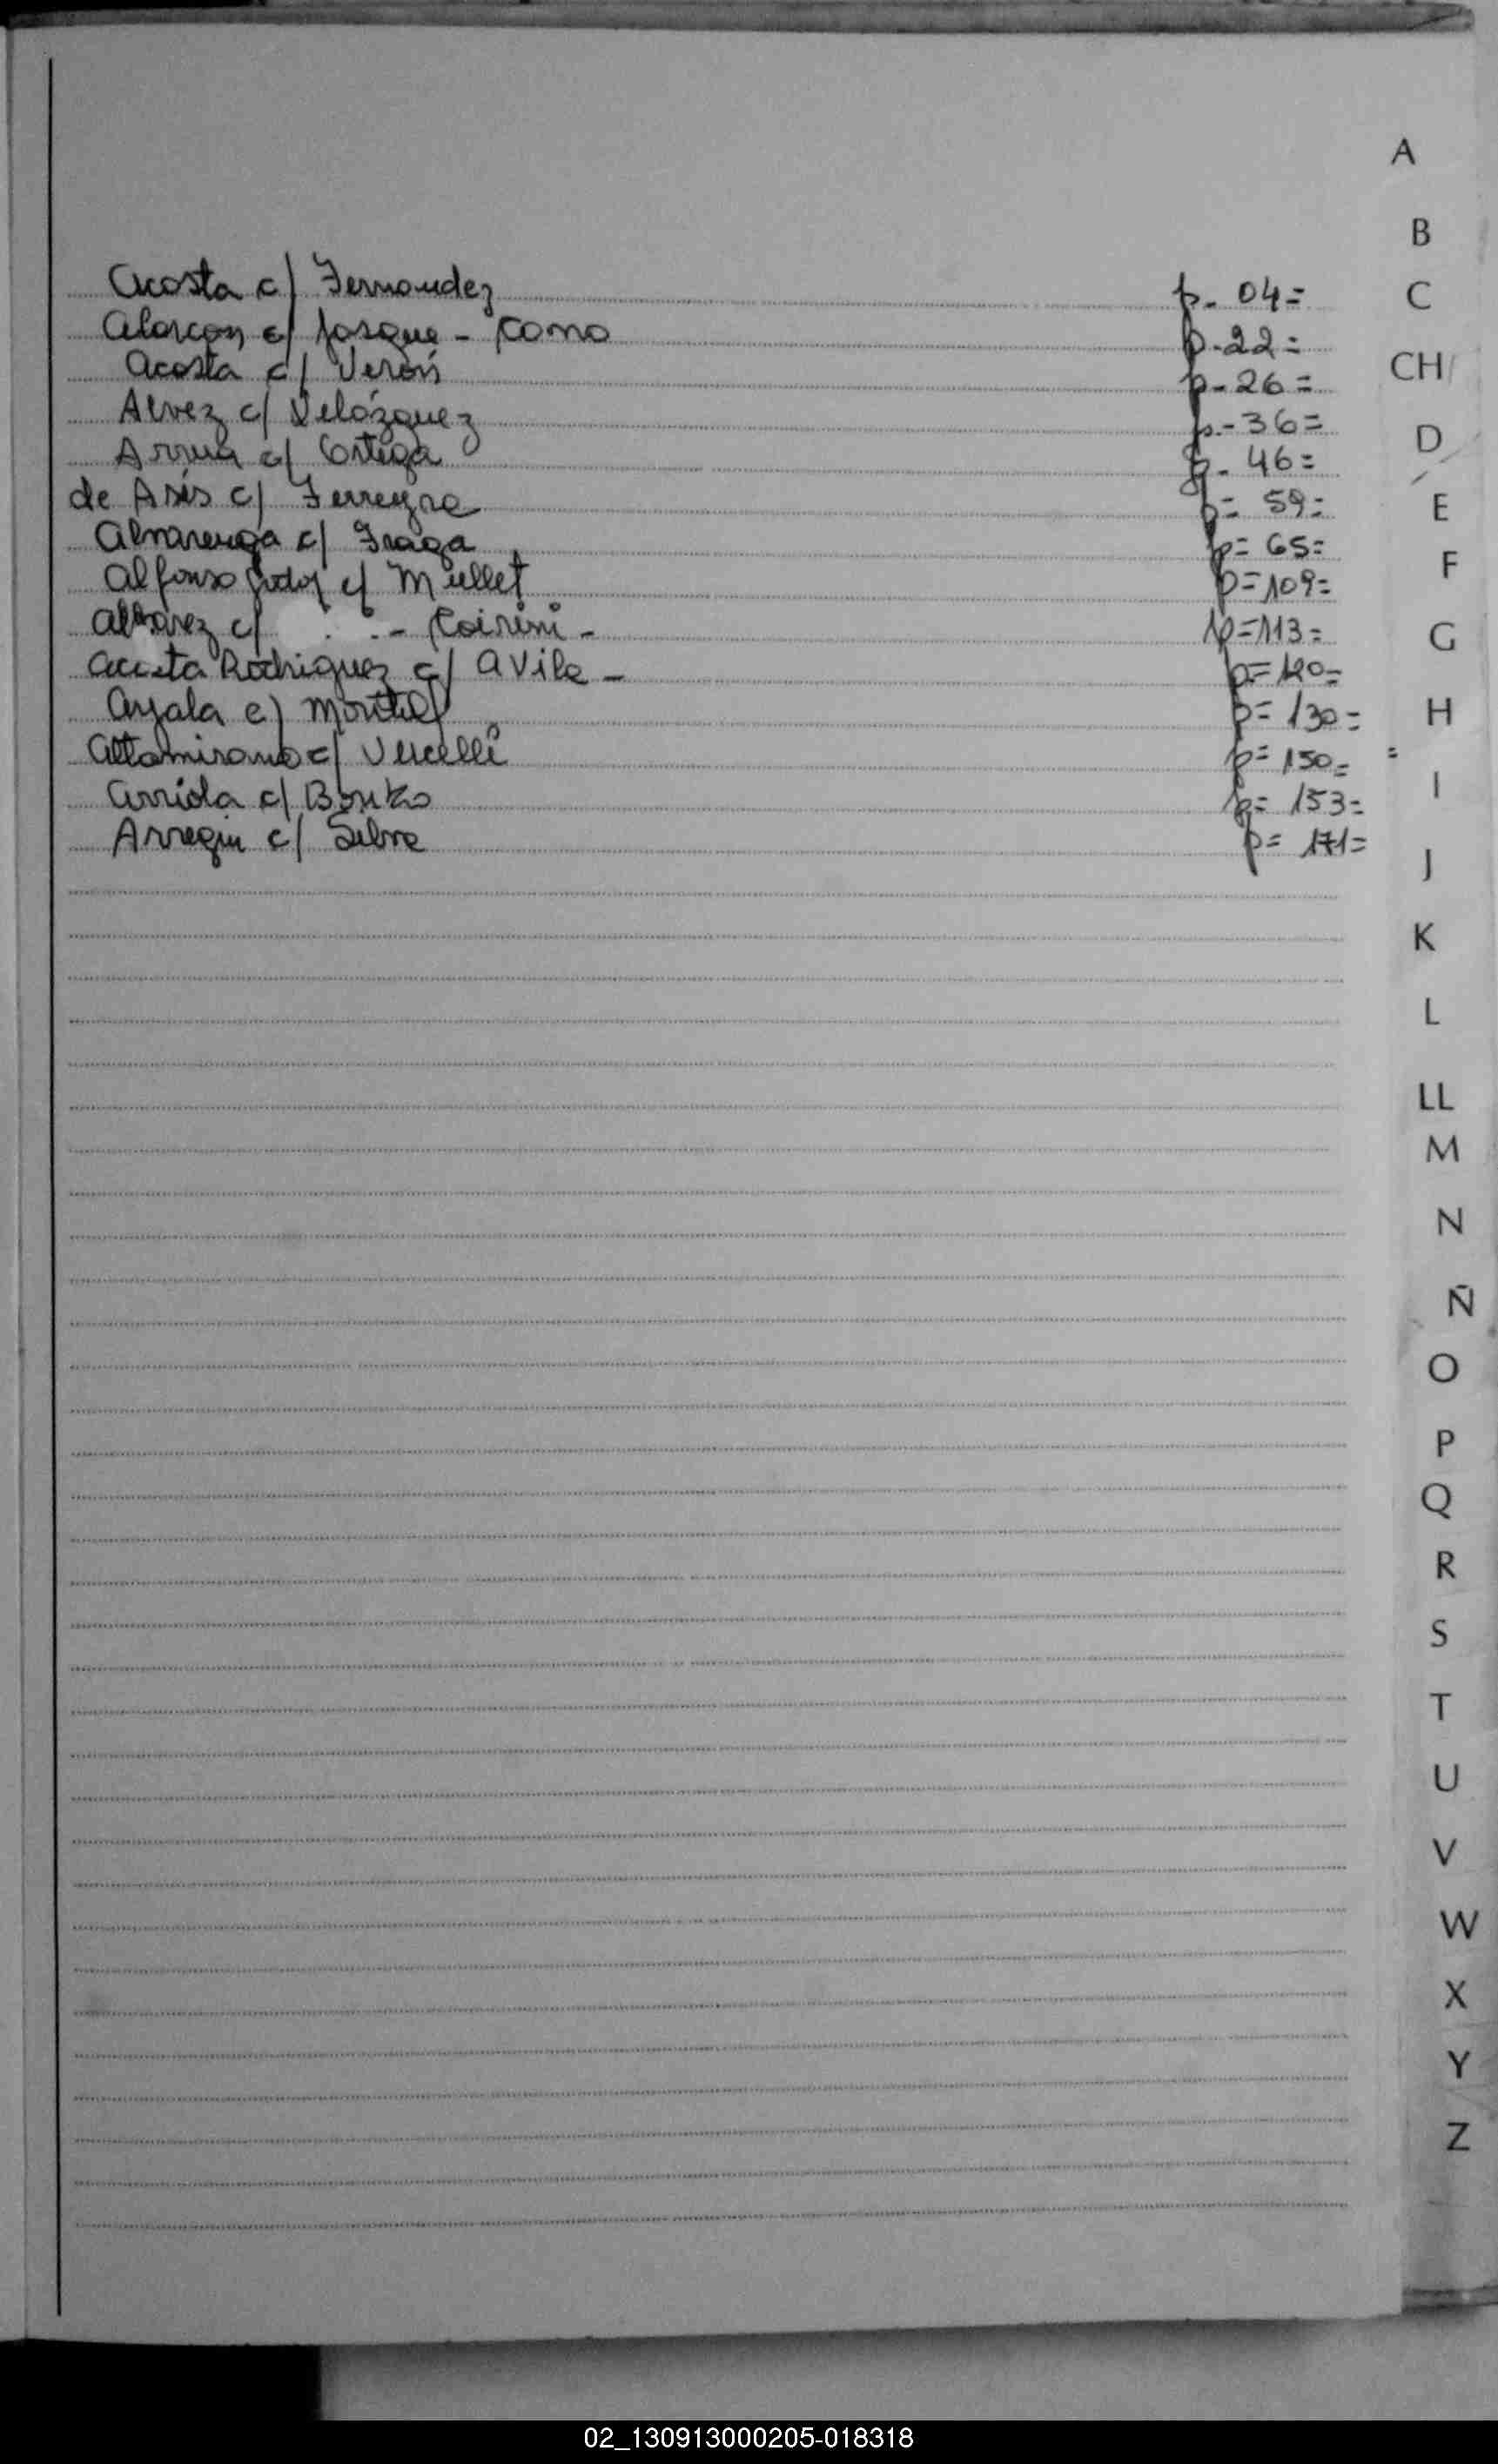 A
B
C
CH
D
E
F
G
H
I
J
K
L
LL
M
N
Ñ
O
P
Q
R
S
T
U
V
W
X
Y
Z
Acosta c/ Fernandez p- 04=
Alarcon c/ - Romo p-22=
Acosta c/ Verón p-26=
Alvez c/ Velázquez p-36=
Arrua c/ Ortega p- 46=
de Asís c/ Ferreyra p= 59=
Alvarenga c/ Fraga p= 65=
Alfonso Godoy c/ Mullet p=109=
c/ - Coirini - p=113=
Acosta Rodriguez c/ Avila - p=120=
Ayala c/ Montiel p= 130=
Altamirano c/ Vercelli p= 150=
Arriola c/ p= 153=
Arregin c/ Silva p= 171=
02_130913000205-018318